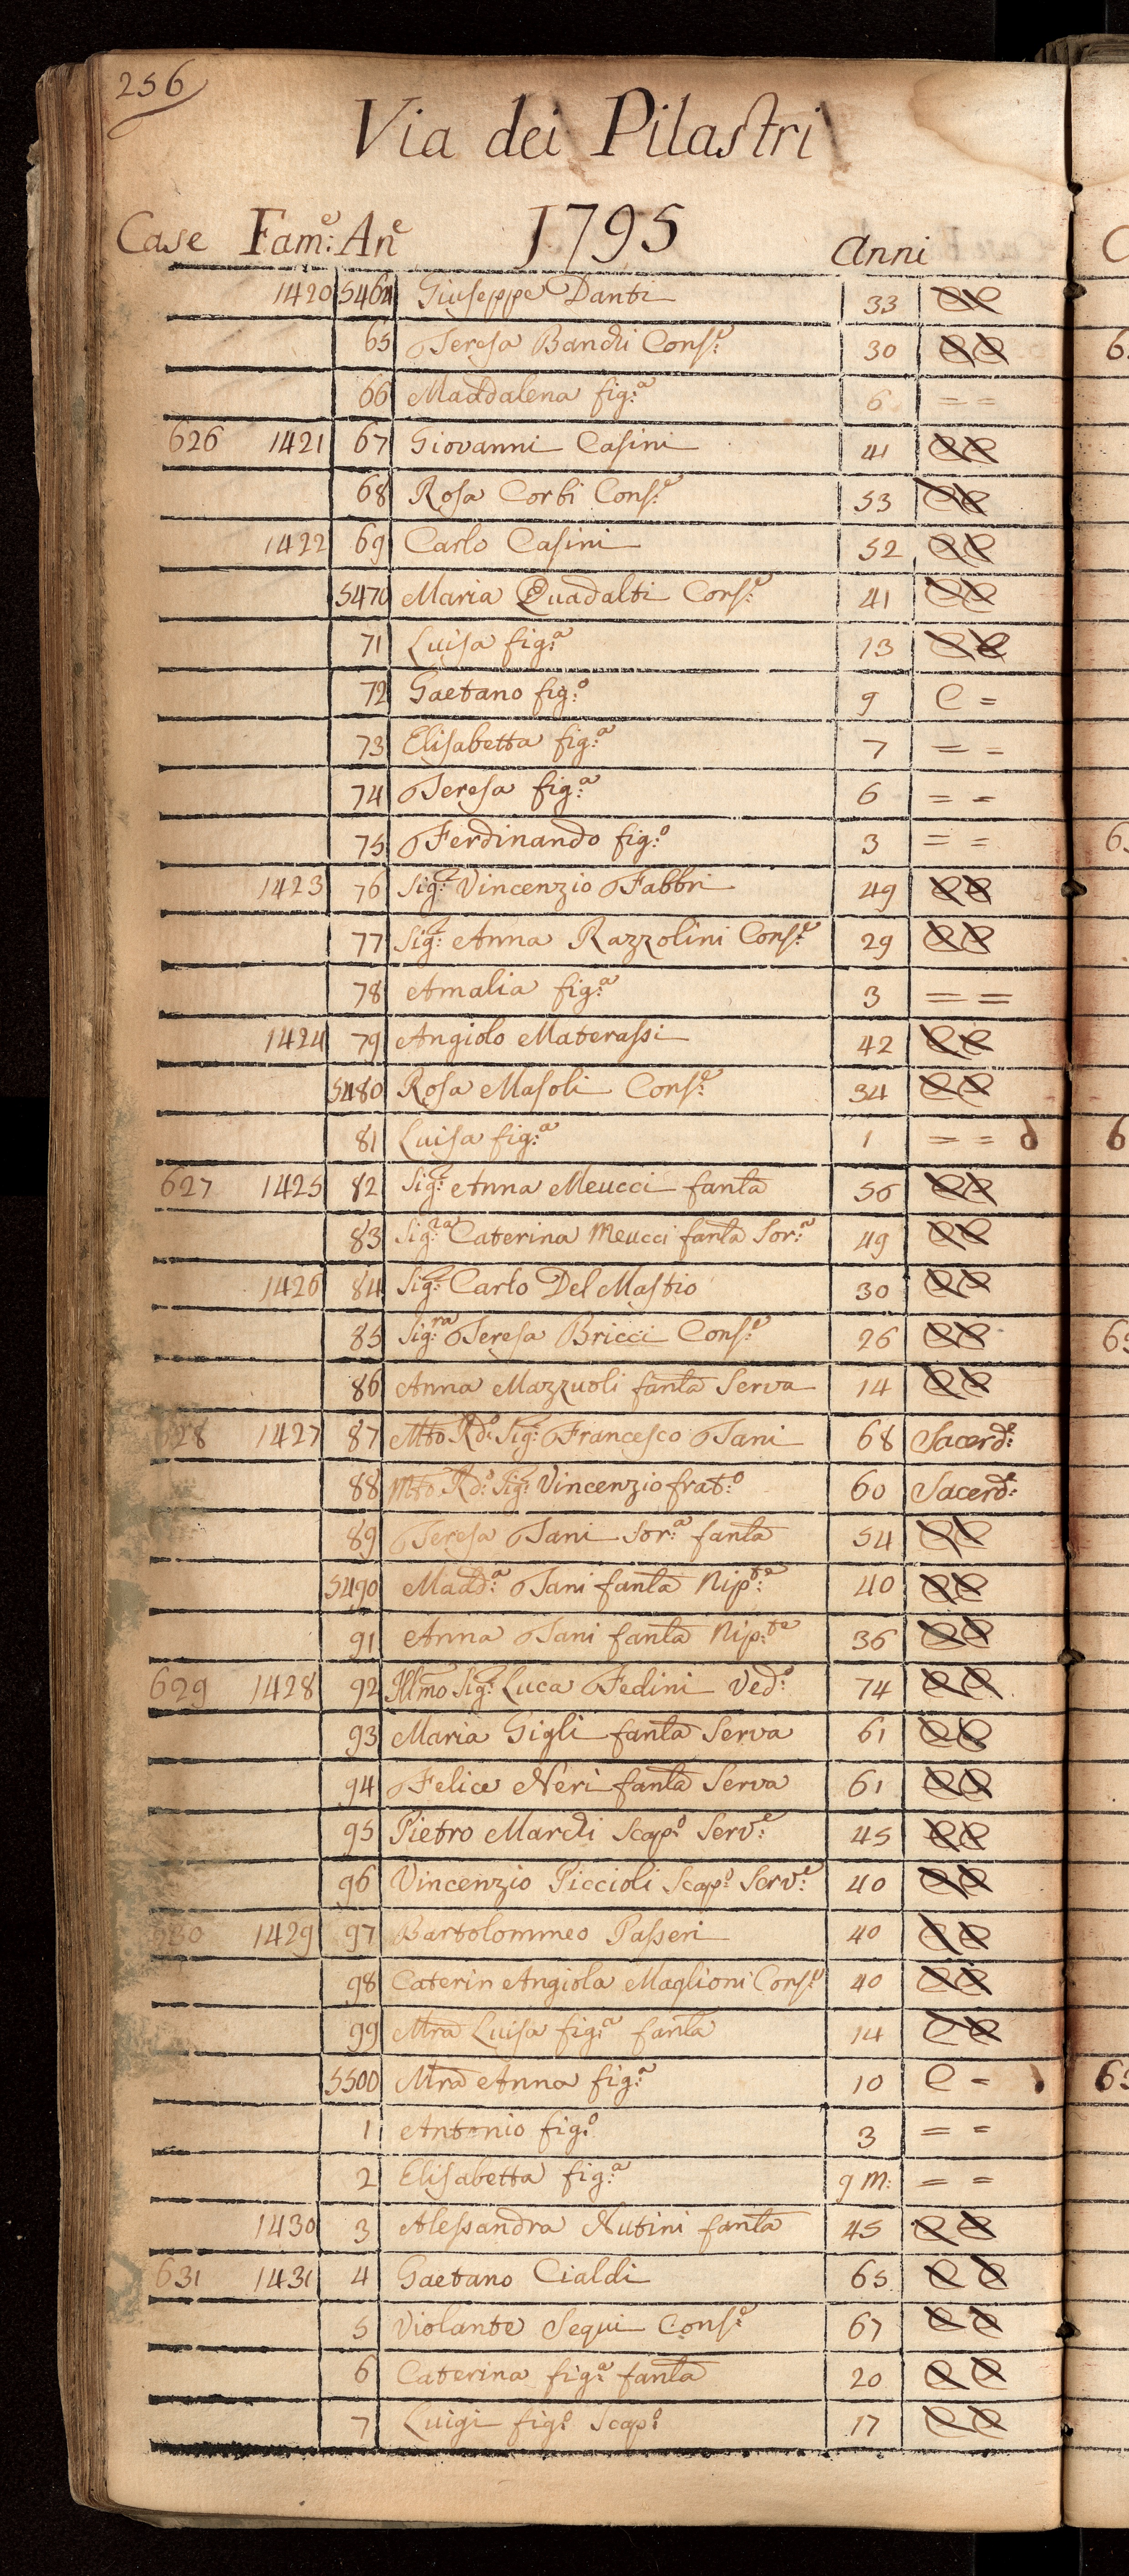 256
Via dei Pilastri
Case Fam:e An:e 1795 Anni
1420 5464 Giuseppe Danti 33 CC
65 Teresa Bandi Cons:e 30 CC
66 Maddalena fig:a 6 = =
626 1421 67 Giovanni Casini 41 CC
68 Rosa Corbi Cons:e 53 CC
1422 69 Carlo Casini 52 CC
5470 Maria Quadalti Cons:e 41 CC
71 Luisa fig:a 13 CC
72 Gaetano fig:o 9 C =
73 Elisabetta fig:a 7 = =
74 Teresa fig:a 6 = =
75 Ferdinando fig:o 3 = =
1423 76 Sig:r Vincenzio Fabbri 49 CC
77 Sig:a Anna Razzolini Cons:e 29 CC
78 Amalia fig:a 3 = =
1424 79 Angiolo Materassi 42 CC
5480 Rosa Masoli Cons:e 34 CC
81 Luisa fig:a 1 = = d
627 1425 82 Sig:a Anna Meucci fanla 56 CC
83 Sig:ra Caterina Meucci fanla Sor:a 49 CC
1426 84 Sig:r Carlo Del Mastio 30 CC
85 Sig:ra Teresa Bricci Cons:e 26 CC
86 Anna Mazzuoli fanla Serva 14 CC
628 1427 87 Mto Rdo: Sig:r Francesco Tani 68 Sacerd:e
88 Mto Rdo: Sig:r Vincenzio frat:o 60 Sacerd:e
89 Teresa Tani Sor:a fanla 54 CC
5490 Madd:a Tani fanla Nip:te 40 CC
91 Anna Tani fanla Nip:te 36 CC
629 1428 92 Illmo Sig:r Luca Fedini Ved:o 74 CC
93 Maria Gigli fanla Serva 61 CC
94 Felice Neri fanla Serva 61 CC
95 Pietro Mardi Scap:o Serv:e 45 CC
96 Vincenzio Piccioli Scap:o Serv:e 40 CC
630 1429 97 Bartolommeo Passeri 40 CC
98 Caterin Angiola Maglioni Cons:e 40 CC
99 Mra Luisa fig:a fanla 14 CC
5500 Mra Anna fig:a 10 C =
1 Antonio fig:o 3 = =
2 Elisabetta fig:a 9 m: = =
1430 3 Alessandra Nutini fanla 45 CC
631 1431 4 Gaetano Cialdi 65 CC
5 Violante Segui Cons:e 67 CC
6 Caterina fig:a fanla 20 CC
7 Luigi fig:o Scap:o 17 CC